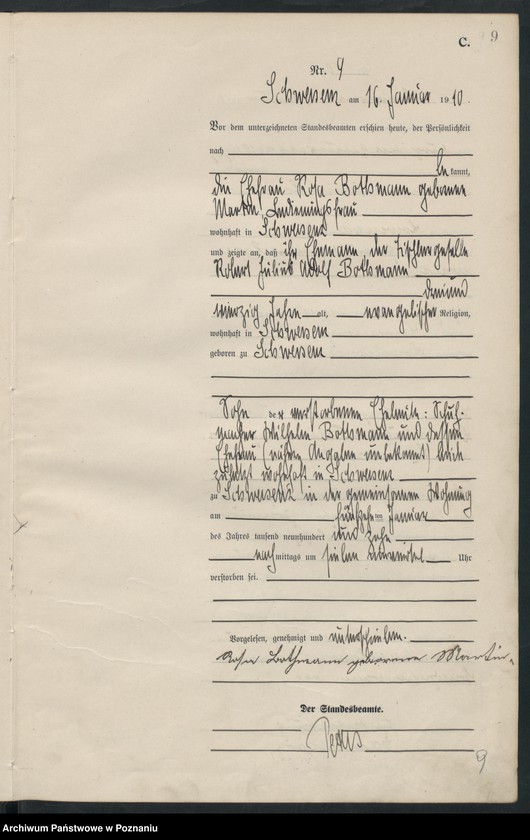 C. 9
Nr. 4
Schwesenz am 16. Januar 1910.
Vor dem unterzeichneten Standesbeamten erschien heute, der Persönlichkeit
nach
be kannt,
die Ehefrau Rosa Bothmann geborene
Martin,
wohnhaft in Schwesenz
und zeigte an, daß ihr Ehemann, der Tischlergeselle
Robert Julius Adolf Bothmann
dreiund
vierzig Jahre alt, evangelischer Religion,
wohnhaft in Schwesenz
geboren zu Schwesenz
Sohn der verstorbenen Eheleute: Schuh-
macher Wilhelm Bothmann und dessen
Ehefrau (nähere Angaben unbekannt) beide
zuletzt wohnhaft in Schwesenz
zu Schwesenz in der gemeinsamen Wohnung
am fünfzehnten Januar
des Jahres tausend neunhundert und zehn
nach mittags um sieben Uhr
verstorben sei.
Vorgelesen, genehmigt und unterschrieben.
Rosa Bothmann geborene Martin.
Der Standesbeamte.
9
Archiwum Państwowe w Poznaniu